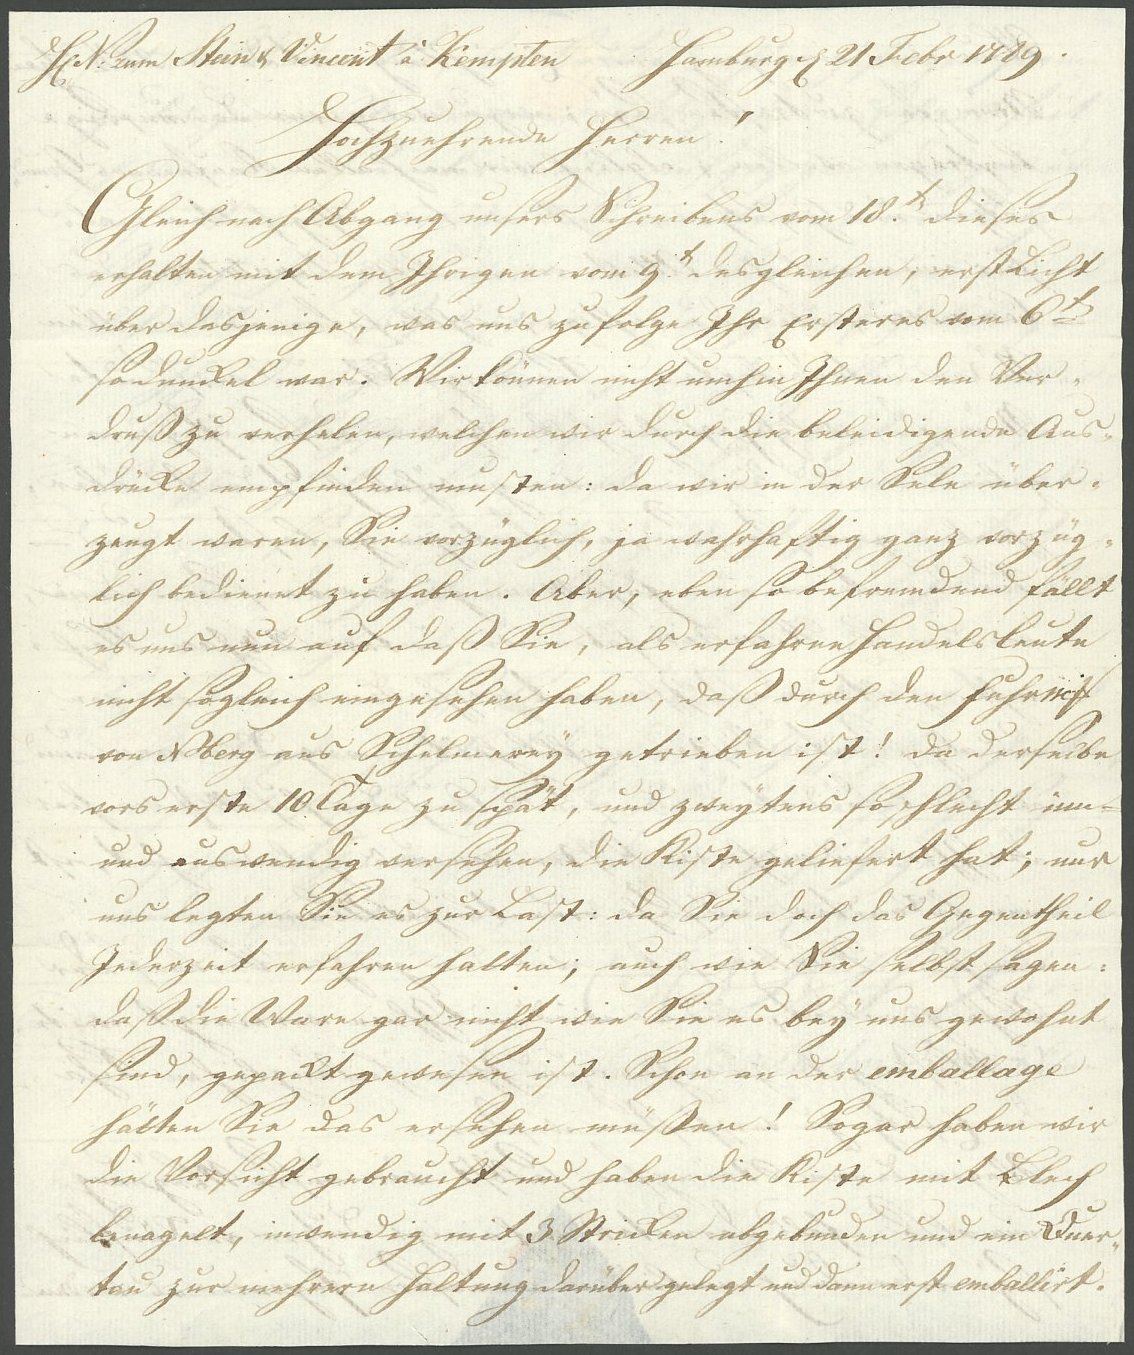 H. N. zum Stein & Vincent à Kempten Hamburg d 21 Febr 1789.
Hochzuehrende Herren!
Gleich nach Abgang unsers Schreibens vom 18.t dieses
erhalten mit dem Ihrigen vom 9.t desgleichen, erst Licht
über dasjenige, was uns zufolge Ihr Ersteres vom 6t
so dunckel war. Wir können nicht umhin Ihnen den Ver-
druß zu verhelen, welchen wir durch die beleidigende Aus-
drücke empfinden musten: da wir in der Sele über-
zeugt waren, Sie vorzüglich, ja wahrhaftig ganz vorzüg-
lich bedienet zu haben. Aber, eben so befremdend fällt
es uns nun auf daß Sie, als erfahrne Handelsleute
nicht sogleich eingesehen haben, daß durch den Fuhr
von Nberg aus Schelmerey getrieben ist! da derselbe
vors erste 10 Tage zu spät, und zweytens so schlecht inn-
und auswendig versehen, die Kiste geliefert hat; nur
uns legten Sie es zur Last: da Sie doch das Gegentheil
Jederzeit erfahren hatten; auch wie Sie selbst sagen:
daß die Ware gar nicht wie Sie es bey uns gewohnt
sind, gepackt gewesen ist. Schon an der emballage
hätten Sie das ersehen müßen! Sogar haben wir
die Vorsicht gebraucht und haben die Kiste mit Blech
benagelt, inwendig mit 3 Stricken abgebunden und ein Quer-
tau zur mehrern Haltung darüber gelegt und dann erst emballirt.